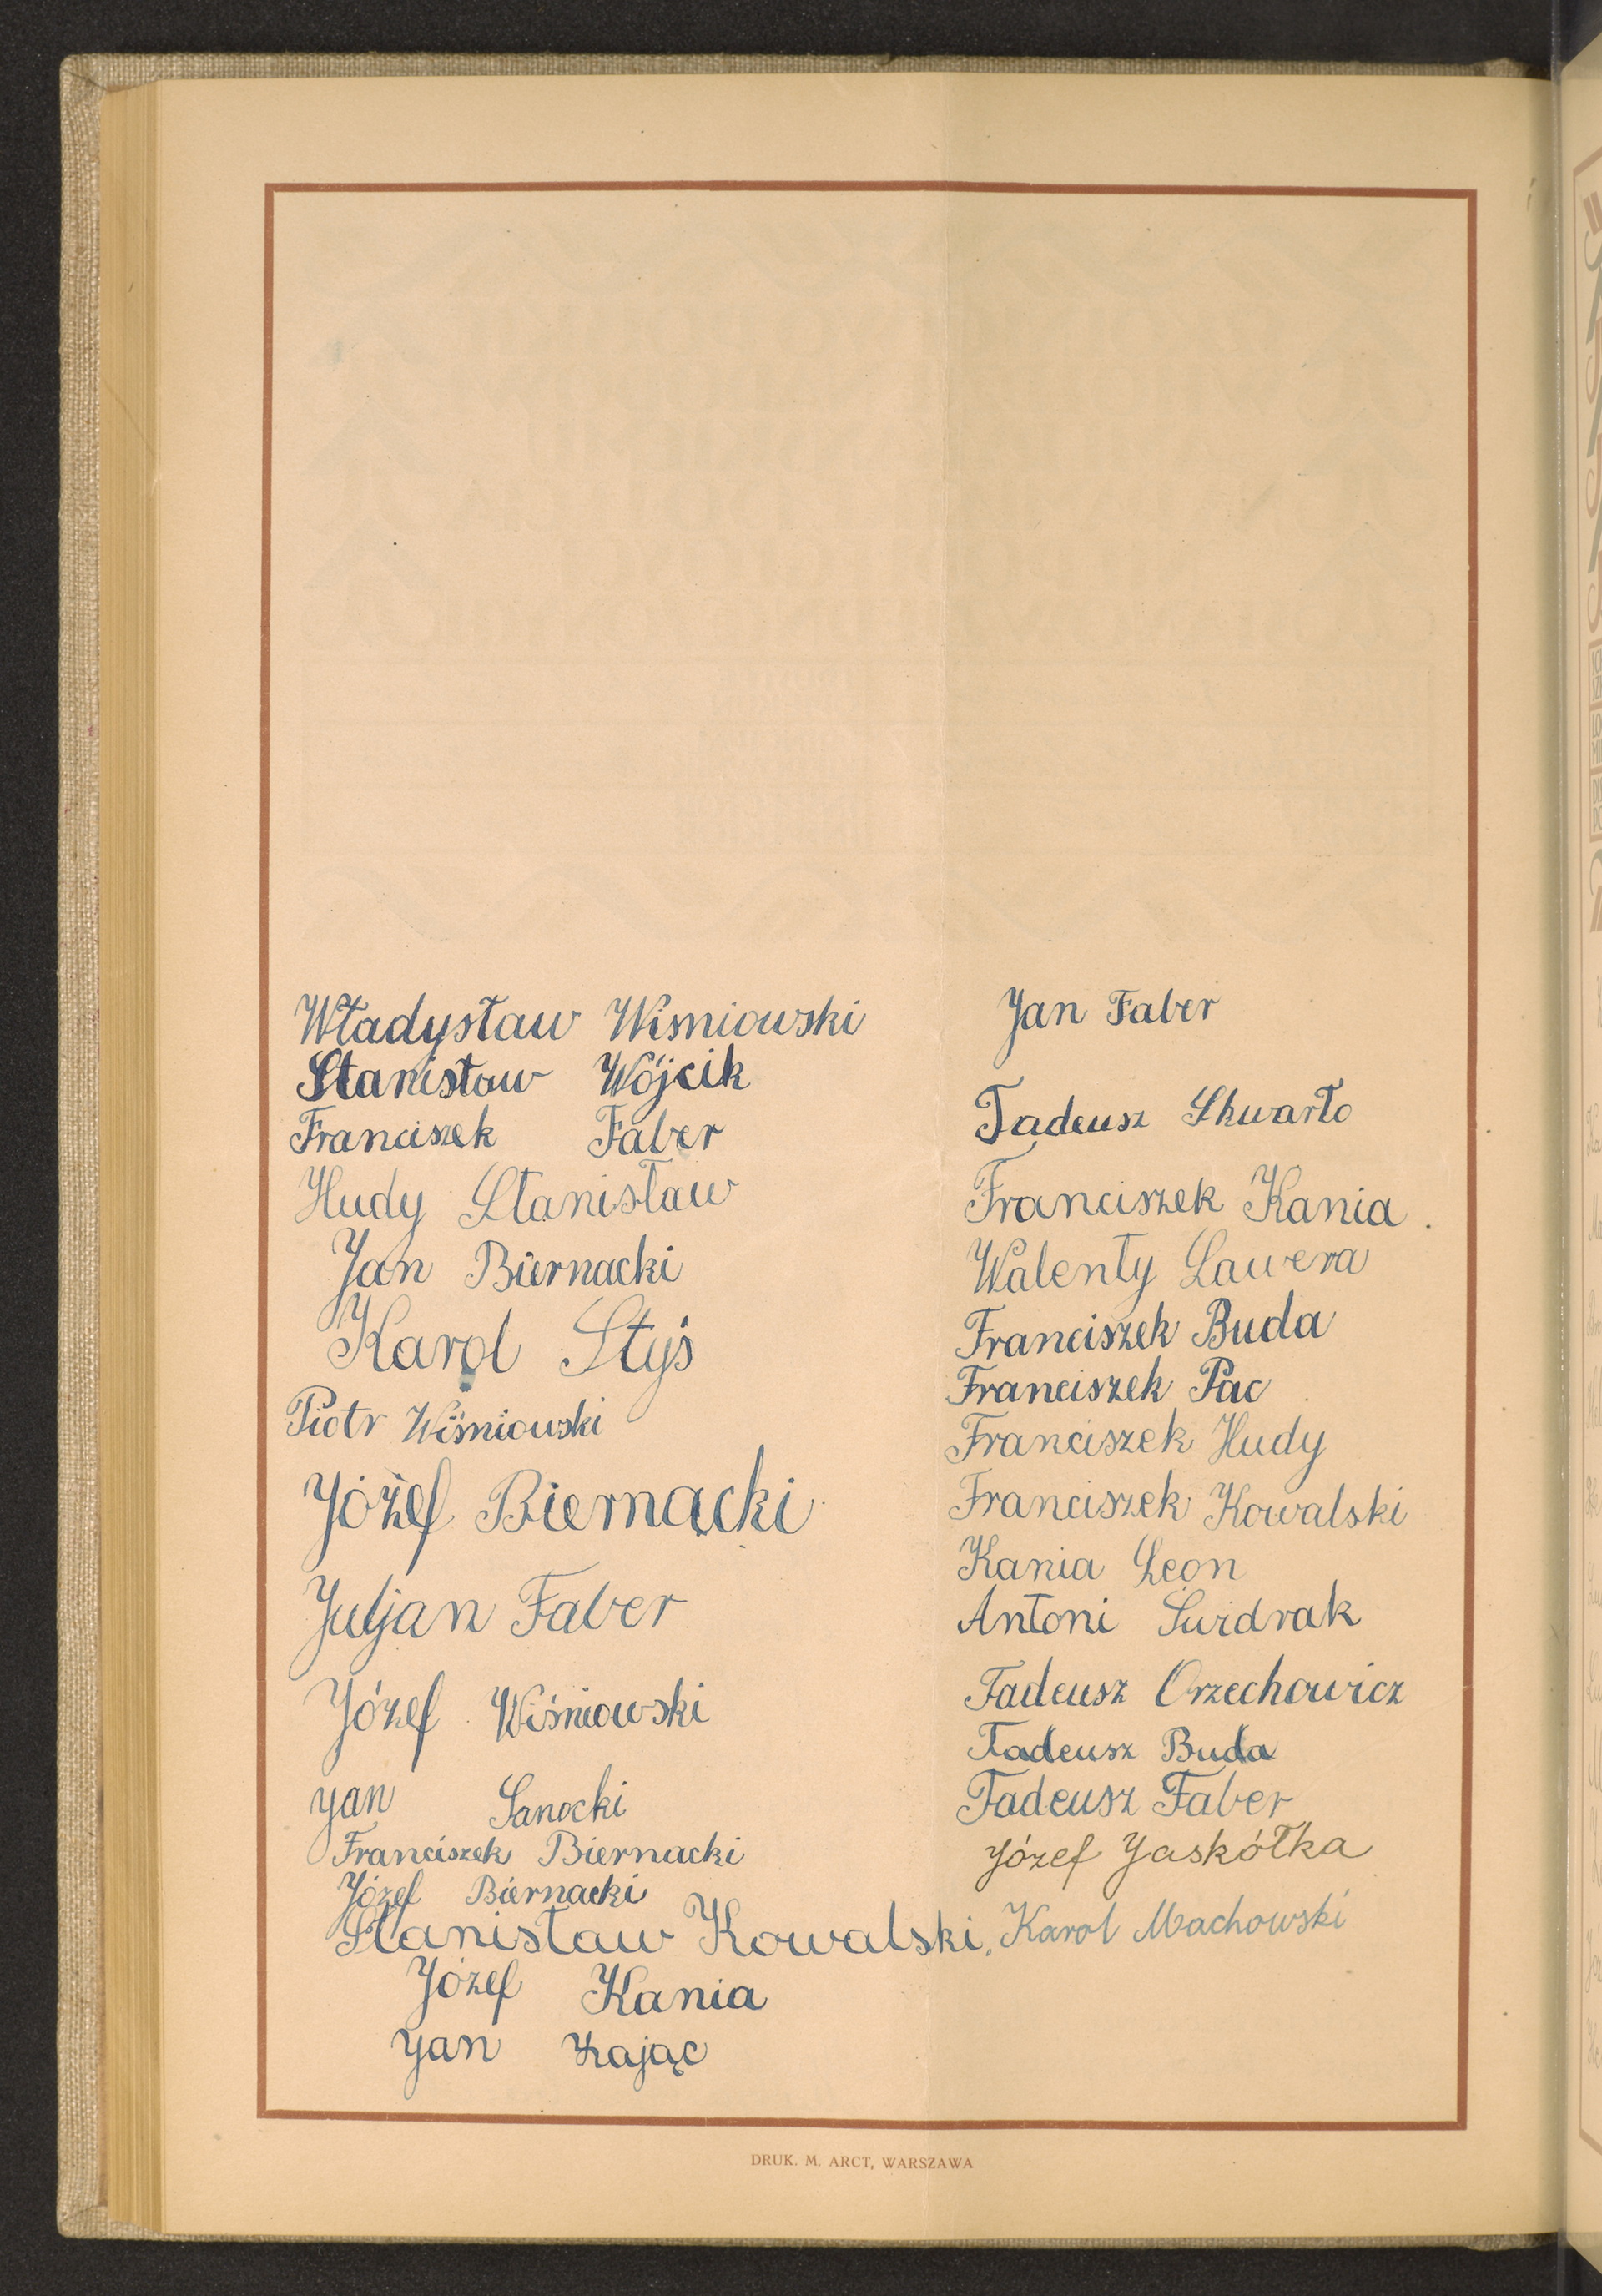 Władysław Wiśniowski
Stanisław Wójcik
Franciszek Faber
Hudy Stanisław
Jan Biernacki
Karol Styś
Piotr Wiśniowski
Józef Biernacki
Juljan Faber
Józef Wiśniowski
Jan Sanocki
Franciszek Biernacki
Józef Biernacki
Stanisław Kowalski.
Józef Kania
Jan Zając
Jan Faber
Tadeusz Skwarło
Franciszek Kania.
Walenty Lawera
Franciszek Buda
Franciszek Pac
Franciszek Hudy
Franciszek Kowalski
Kania Leon
Antoni
Tadeusz Orzechowicz
Tadeusz Buda
Tadeusz Faber
Józef Jaskółka
Karol Machowski
DRUK. M. ARCT, WARSZAWA